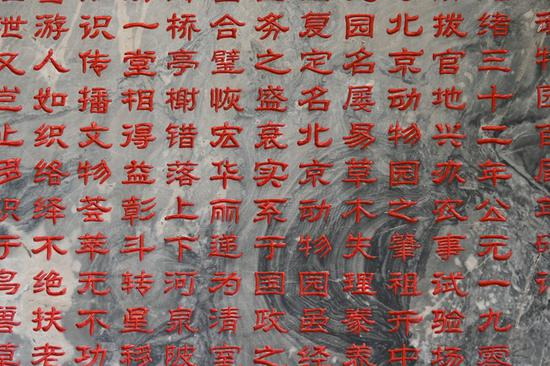 绪三十二年公元一九零
拨官地兴办农事试验场
北京动物园之肇祖开中
园名屡易草木失理豢养
夏定名北京动物园虽经
务之盛衰实系于国政之
合璧恢宏华丽递为清室
桥亭榭错落上下河泉陂
一堂相得益彰斗转星移
识传播文物荟萃无不功
游人如织络绎不绝扶老
泄又岂止多识于鸟兽草